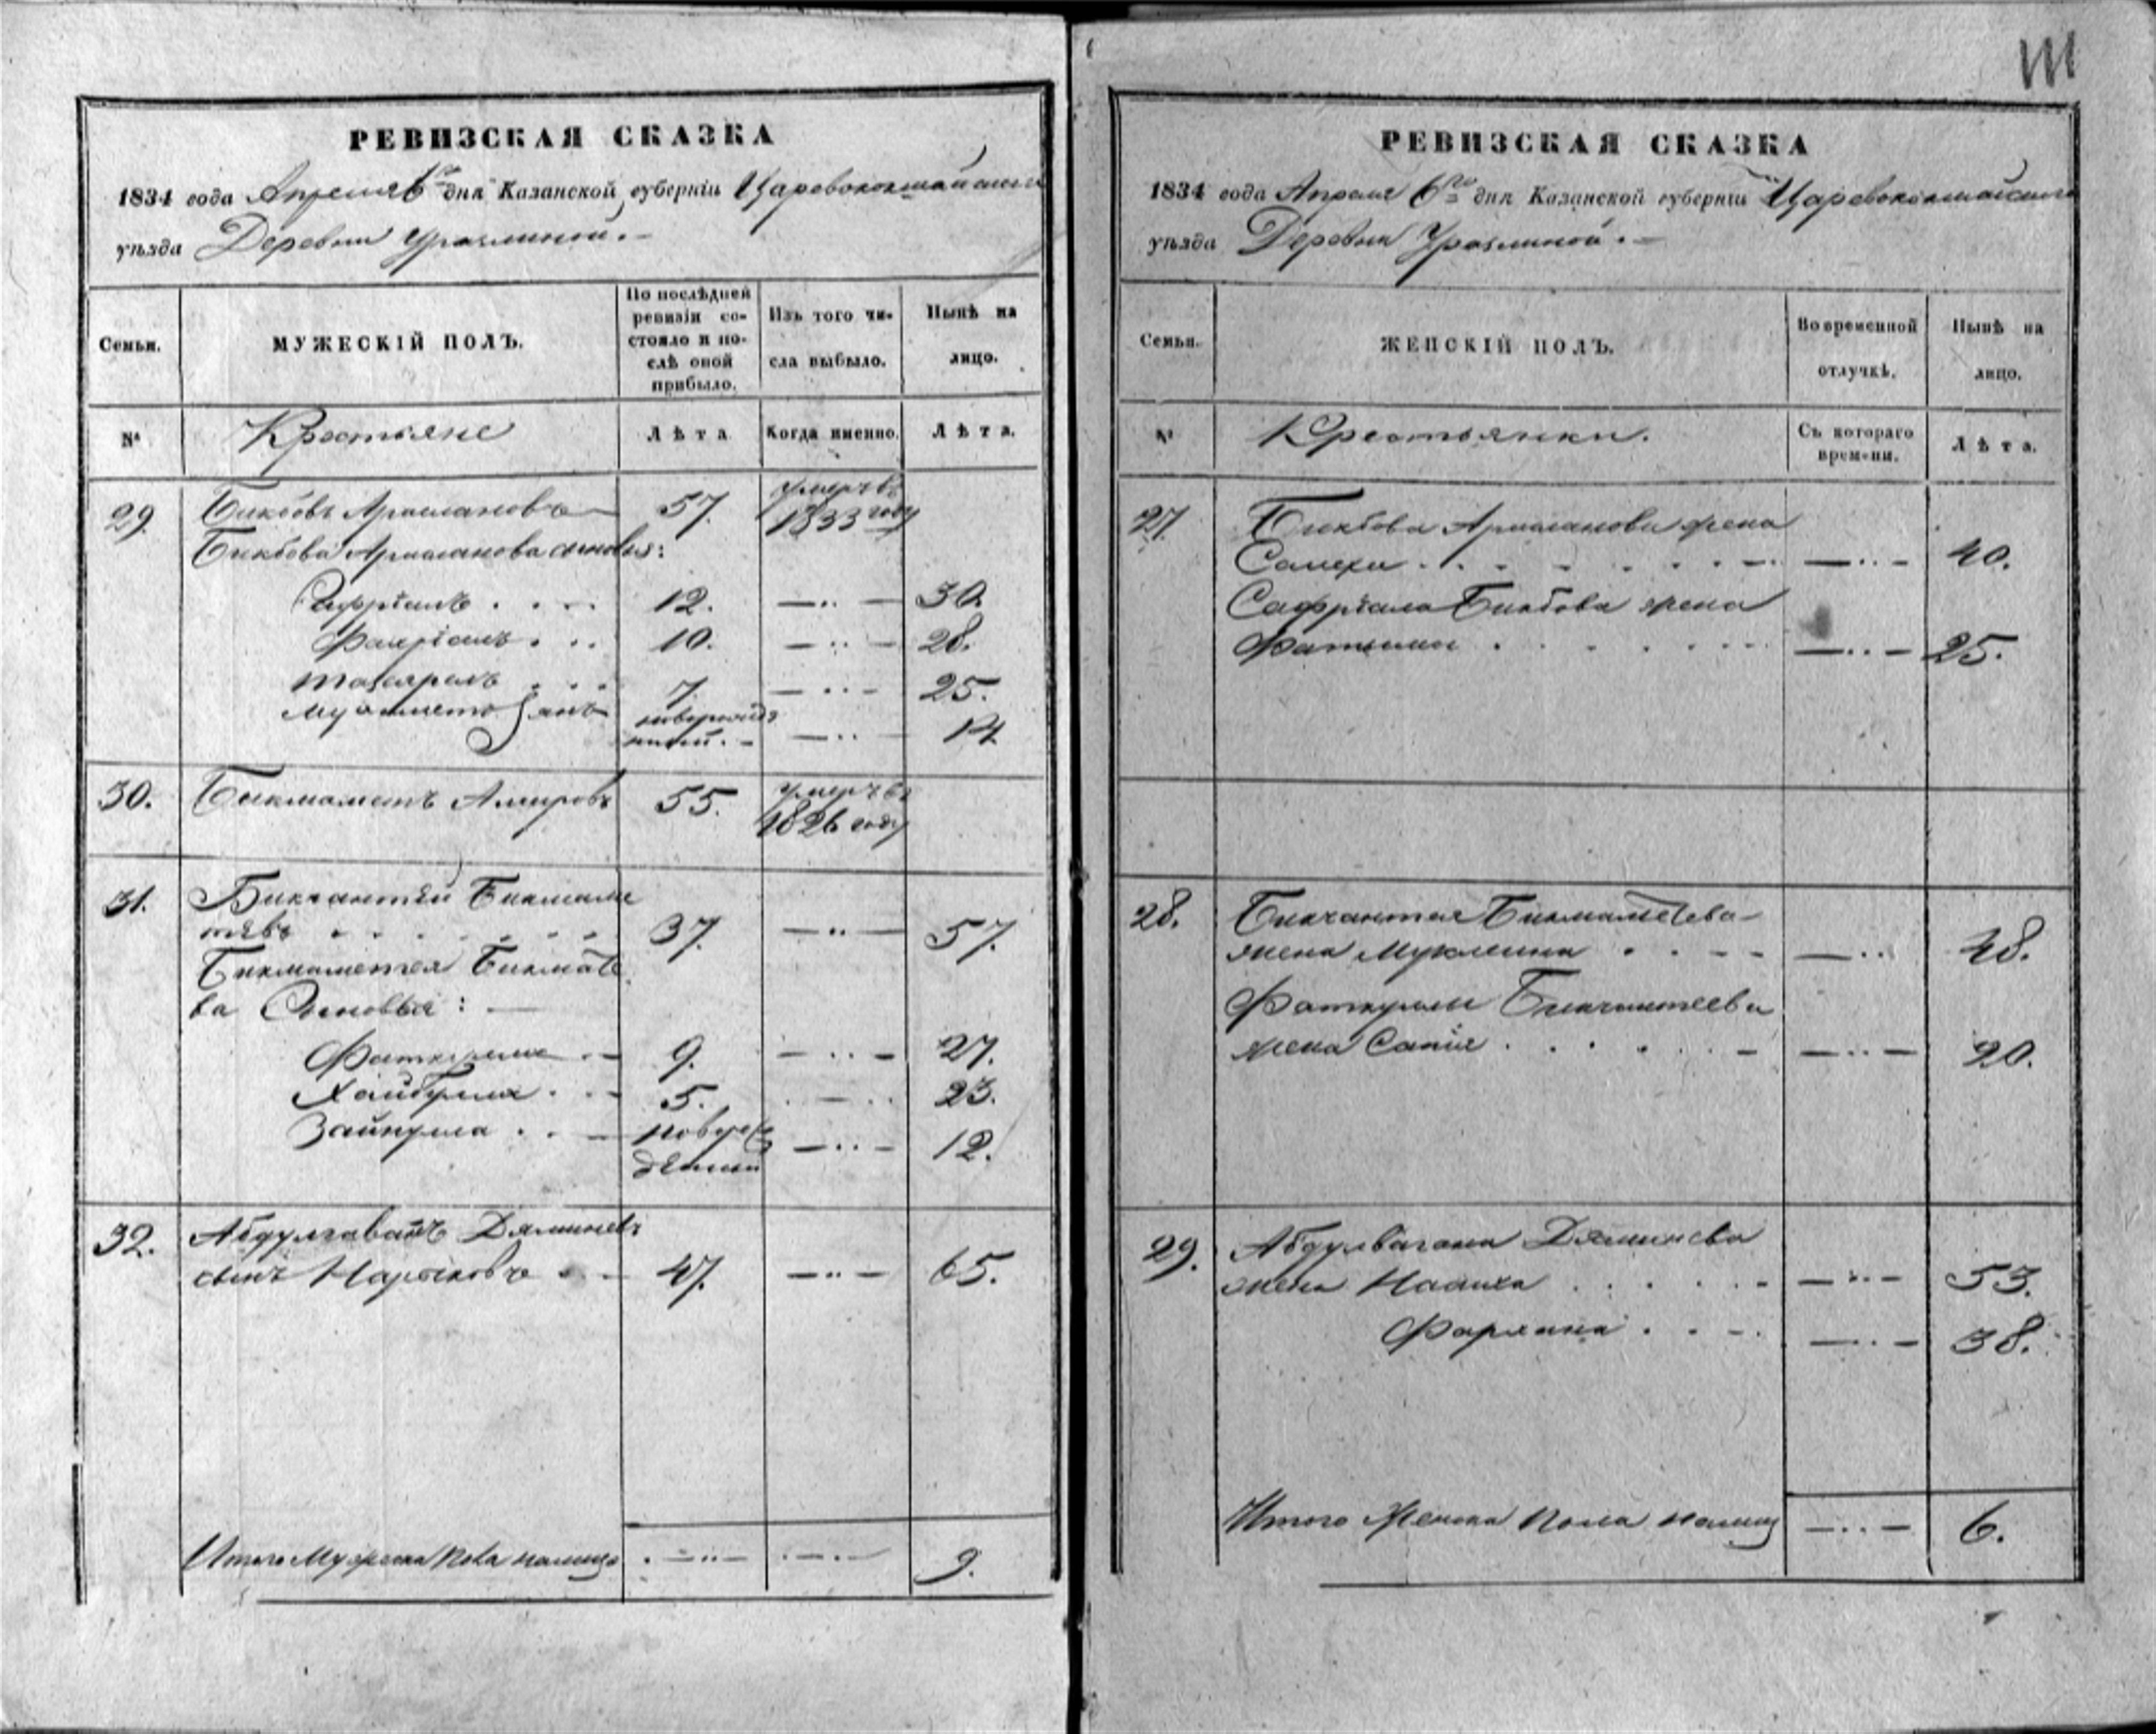 111
РЕВИЗСКАЯ СКАЗКА
1834 года Апреля 6го дня Казанской губерніи Царевококшайскаго
уѣзда Деревни Уразлиной.
Семьи.
МУЖЕСКІЙ ПОЛЪ.
По послѣдней ревизіи состояло и послѣ оной прибыло.
Изъ того числа выбыло.
Нынѣ на лицо.
№
Крестьяне
Лѣта
Когда именно.
Лѣта.
29. Бикбовъ Арслановъ 57. умеръ въ 1833 году
Бикбова Арсланова сыновья:
12. 30.
10. 28.
7. 25.
Мухаметзянъ новорожденный. 14
30. Бикмаметъ Амировъ 55. умеръ въ 1826 году
31. Бикчантѣй Бикмаме
тевъ 37. 57.
ва Сыновья:
Фаткулла 9. 27.
Хайбулла 5. 23.
Зайнулла новорожденный 12.
32. Абдулвагапъ Дяминевъ
сынъ Нарыковъ 47. 65.
Итого Мужеска пола налицо 9.
РЕВИЗСКАЯ СКАЗКА
1834 года Апреля 6го дня Казанской губерніи Царевококшайскаго
уѣзда Деревни Уразлиной.
Семьи.
ЖЕНСКІЙ ПОЛЪ.
Во временной отлучкѣ.
Нынѣ на лицо.
№
Крестьянки.
Съ котораго времени.
Лѣта.
27. Бикбова Арсланова жена
40.
Бикбова жена
25.
28. Бикчантея Бикмаметева
жена 48.
Фаткуллы Бикчантеева
жена Сапія 20.
29. Дяминева
жена 53.
38.
Итого Женска пола налицо 6.